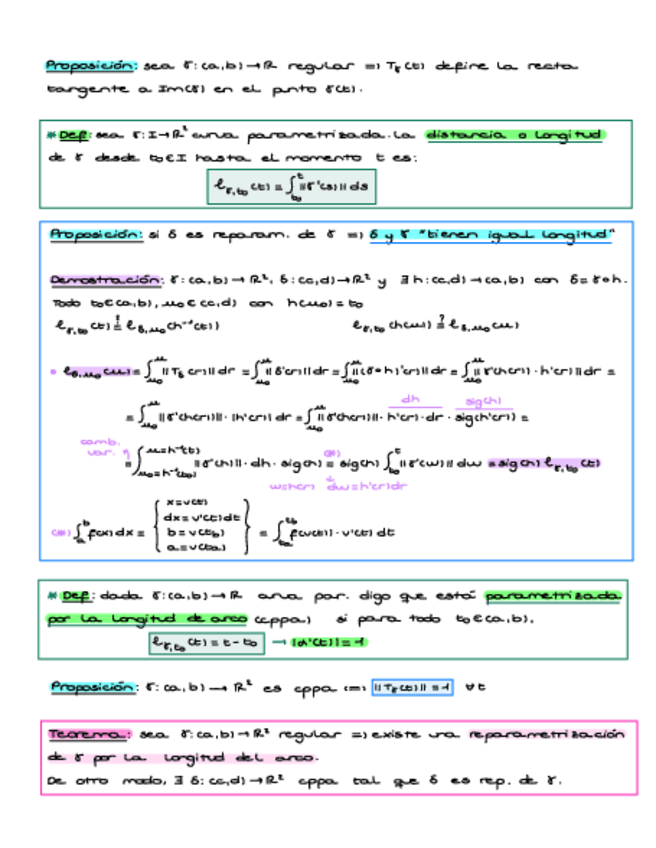 Proposición: sea γ: (a,b) → R regular ⇒ Tγ(t) define la recta
tangente a Im(γ) en el punto γ(t).
* Def: sea γ: I → R² curva parametrizada. La distancia o longitud
de γ desde t₀ ∈ I hasta el momento t es:
lγ,t₀(t) = ∫_{t₀}^{t} ||γ'(s)|| ds
Proposición: si δ es reparam. de γ ⇒ δ y γ "tienen igual longitud"
Demostración: γ: (a,b) → R², δ: (c,d) → R² y ∃ h: (c,d) → (a,b) con δ = γ∘h.
Todo t₀ ∈ (a,b), μ₀ ∈ (c,d) con h(μ₀) = t₀
lγ,t₀(t) =? lδ,μ₀(h⁻¹(t)) lγ,t₀(h(μ)) =? lδ,μ₀(μ)
• lδ,μ₀(μ) = ∫_{μ₀}^{μ} ||Tδ(r)|| dr = ∫_{μ₀}^{μ} ||δ'(r)|| dr = ∫_{μ₀}^{μ} ||(γ∘h)'(r)|| dr = ∫_{μ₀}^{μ} ||γ'(h(r)) · h'(r)|| dr =
= ∫_{μ₀}^{μ} ||γ'(h(r))|| · |h'(r)| dr = ∫_{μ₀}^{μ} ||γ'(h(r))|| · h'(r) · dr · sig(h'(r)) =
dh sig(h)
camb. var.
= ∫_{μ₀=h⁻¹(t₀)}^{μ=h⁻¹(t)} ||γ'(h)|| · dh · sig(h) =(*) sig(h) ∫_{t₀}^{t} ||γ'(w)|| dw = sig(h) lγ,t₀(t)
w=h(r) dw=h'(r)dr
(*) ∫_{a}^{b} f(x) dx = { x=v(t)
dx = v'(t) dt
b = v(t_b)
a = v(t_a) } = ∫_{t_a}^{t_b} f(v(t)) · v'(t) dt
* Def: dada γ: (a,b) → R curva par. digo que está parametrizada
por la longitud de arco (cppa) si para todo t₀ ∈ (a,b),
lγ,t₀(t) = t - t₀ → |α'(t)| = 1
Proposición: γ: (a,b) → R² es cppa ⇔ ||Tγ(t)|| = 1 ∀t
Teorema: sea γ: (a,b) → R² regular ⇒ existe una reparametrización
de γ por la longitud del arco.
De otro modo, ∃ δ: (c,d) → R² cppa tal que δ es rep. de γ.